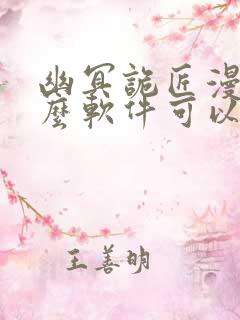 幽冥詭匠漫
麼軟件可以
王善明